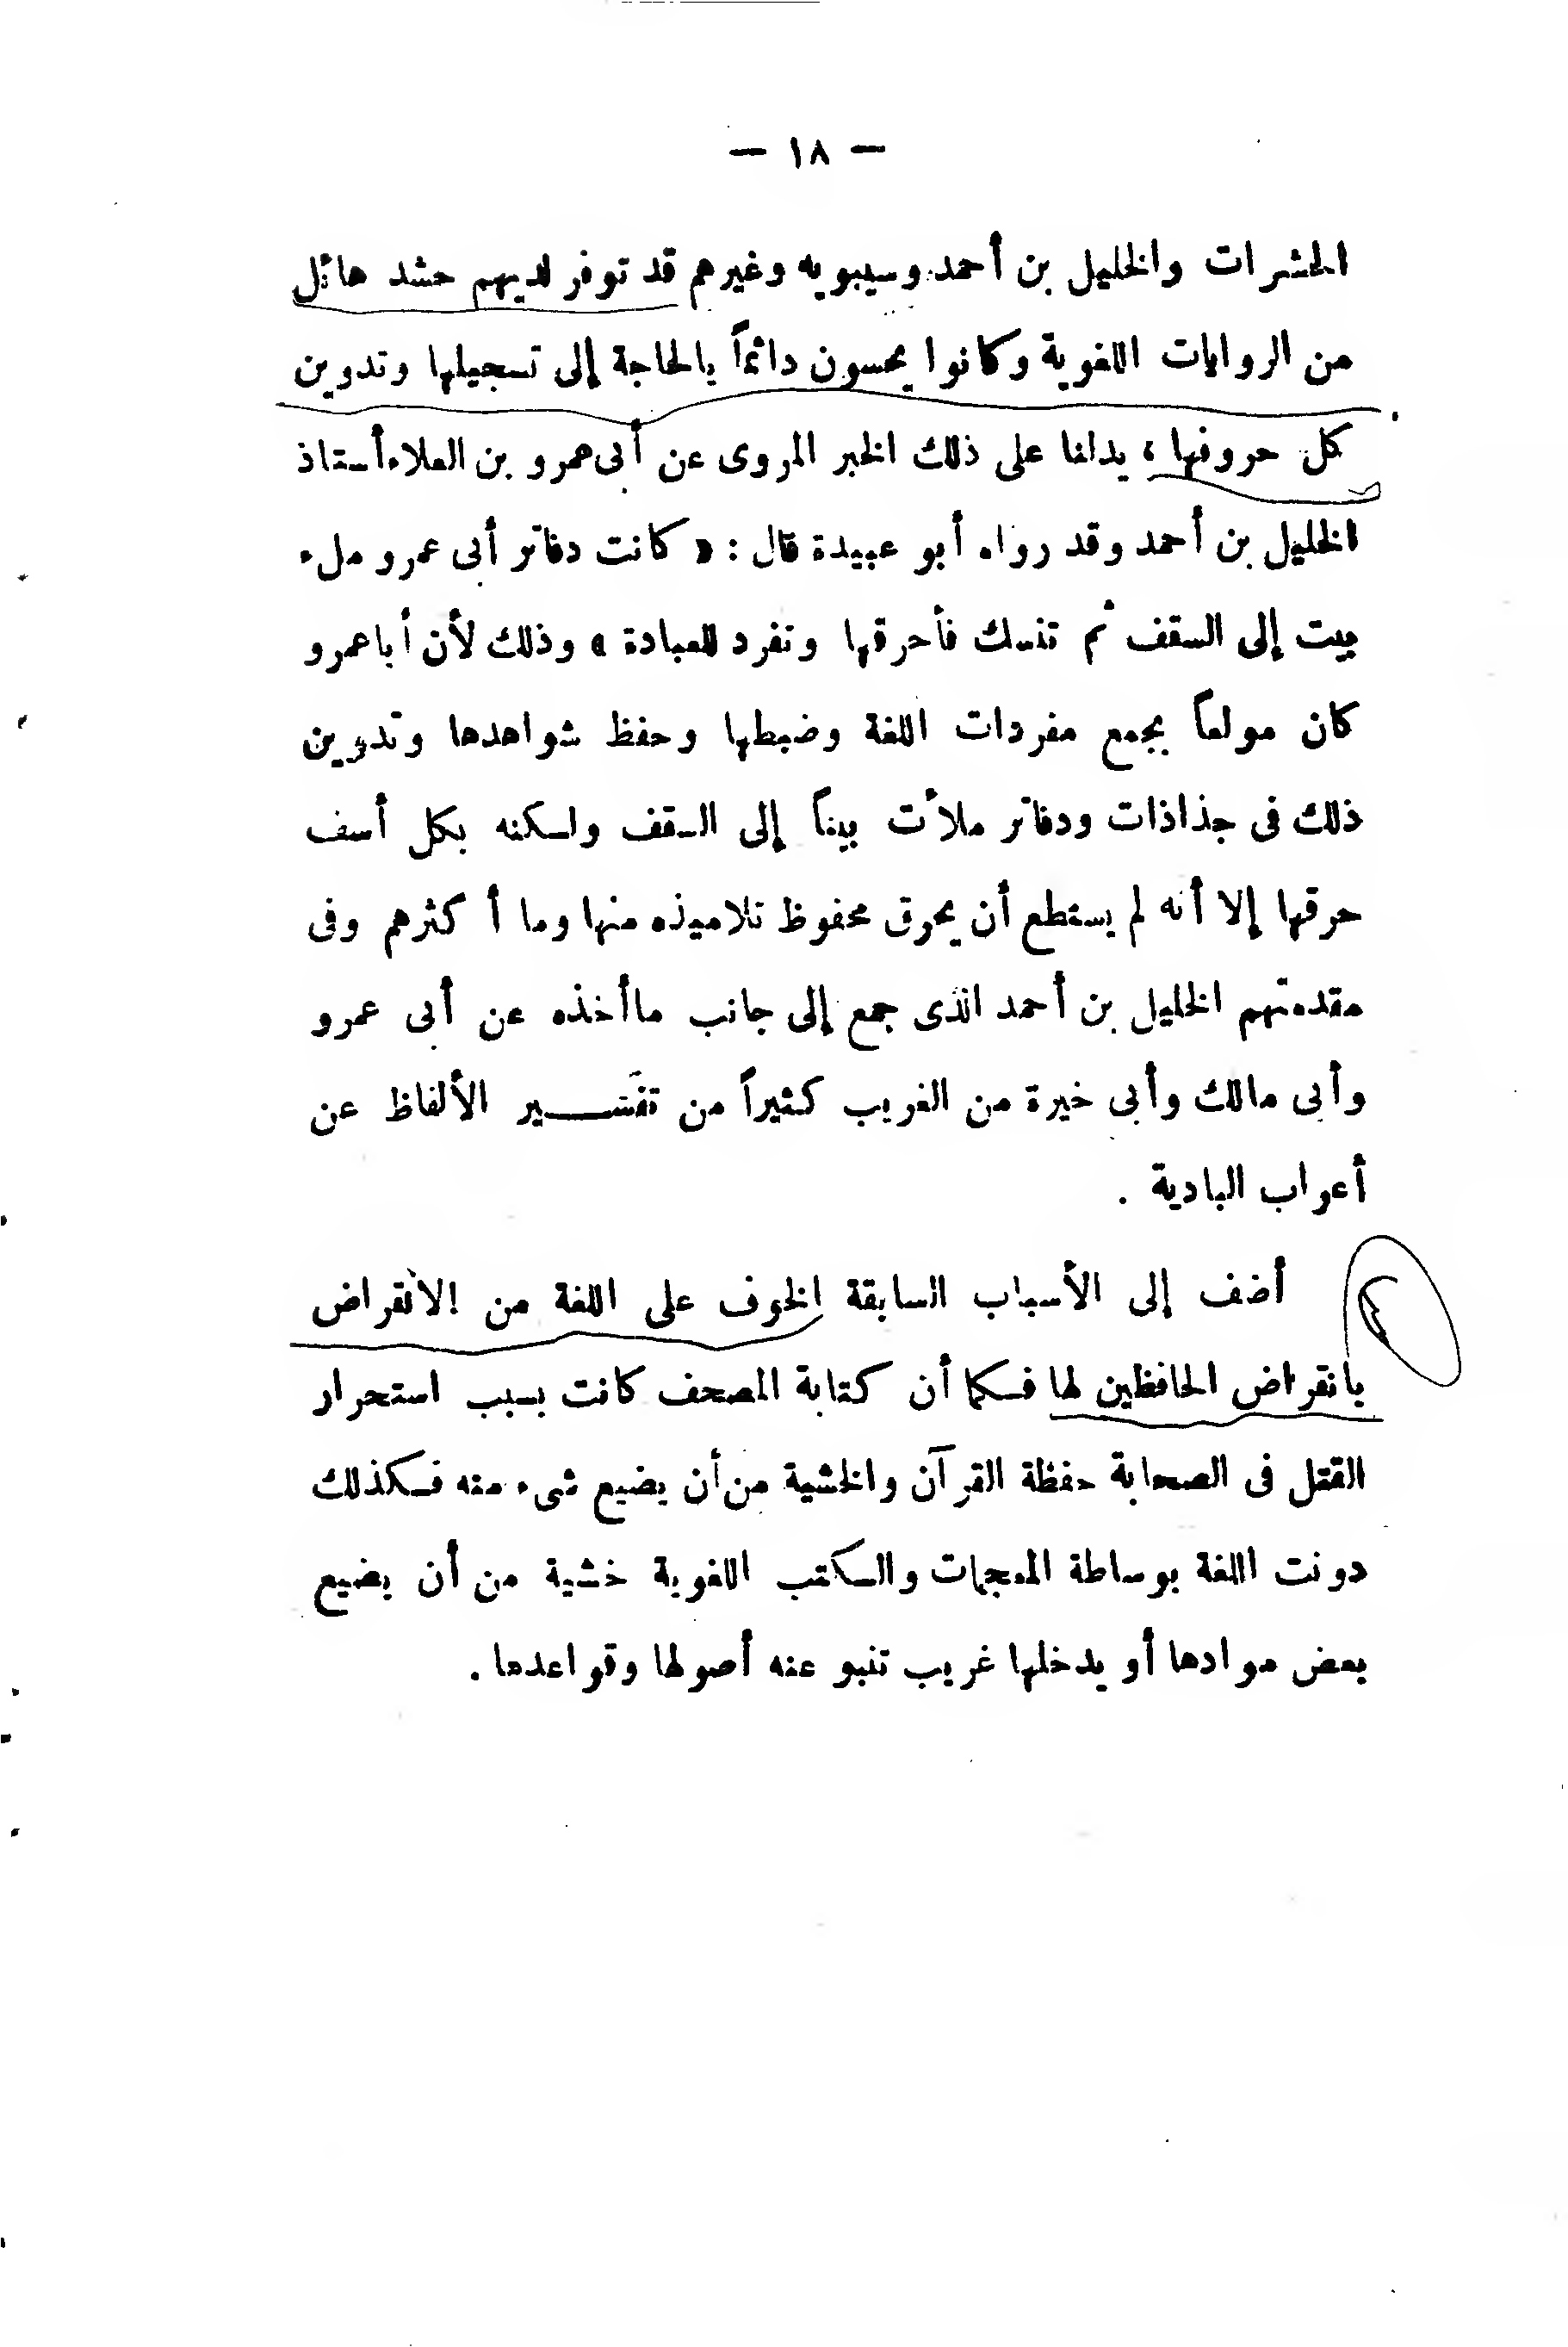 — ١٨ —
الحشرات والخليل بن أحمد وسيبويه وغيرهم قد توفر لديهم حشد هائل
من الروايات اللغوية وكانوا يحسون دائماً بالحاجة إلى تسجيلها وتدوين
كل حروفها ، يدلنا على ذلك الخبر المروى عن أبى عمرو بن العلاء أستاذ
الخليل بن أحمد وقد رواه أبو عبيدة قال : « كانت دفاتر أبى عمرو ملء
بيت إلى السقف ثم تنسك فأحرقها وتفرد للعبادة » وذلك لأن أبا عمرو
كان مولعاً بجمع مفردات اللغة وضبطها وحفظ شواهدها وتدوين
ذلك فى جذاذات ودفاتر ملأت بيتاً إلى السقف ولكنه بكل أسف
حرقها إلا أنه لم يستطع أن يحرق محفوظ تلاميذه منها وما أكثرهم وفى
مقدمتهم الخليل بن أحمد الذى جمع إلى جانب ما أخذه عن أبى عمرو
وأبى مالك وأبى خيرة من الغريب كثيراً من تفســـير الألفاظ عن
أعراب البادية .
أضف إلى الأسباب السابقة الخوف على اللغة من الانقراض
بانقراض الحافظين لها فكما أن كتابة المصحف كانت بسبب استحرار
القتل فى الصحابة حفظة القرآن والخشية من أن يضيع شىء منه فكذلك
دونت اللغة بوساطة المعجمات والكتب اللغوية خشية من أن يضيع
بعض موادها أو يدخلها غريب تنبو عنه أصولها وقواعدها .